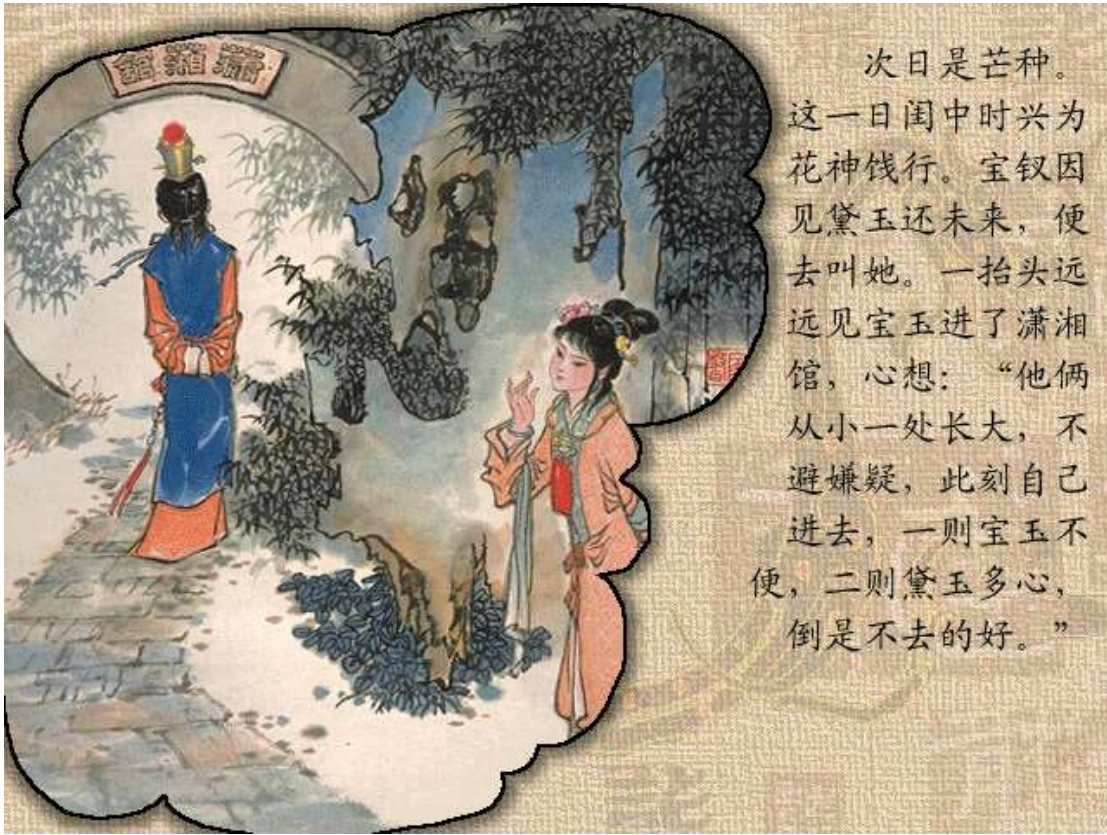 瀟湘館
次日是芒种。
这一日闺中时兴为
花神饯行。宝钗因
见黛玉还未来，便
去叫她。一抬头远
远见宝玉进了潇湘
馆，心想：“他俩
从小一处长大，不
避嫌疑，此刻自己
进去，一则宝玉不
便，二则黛玉多心，
倒是不去的好。”